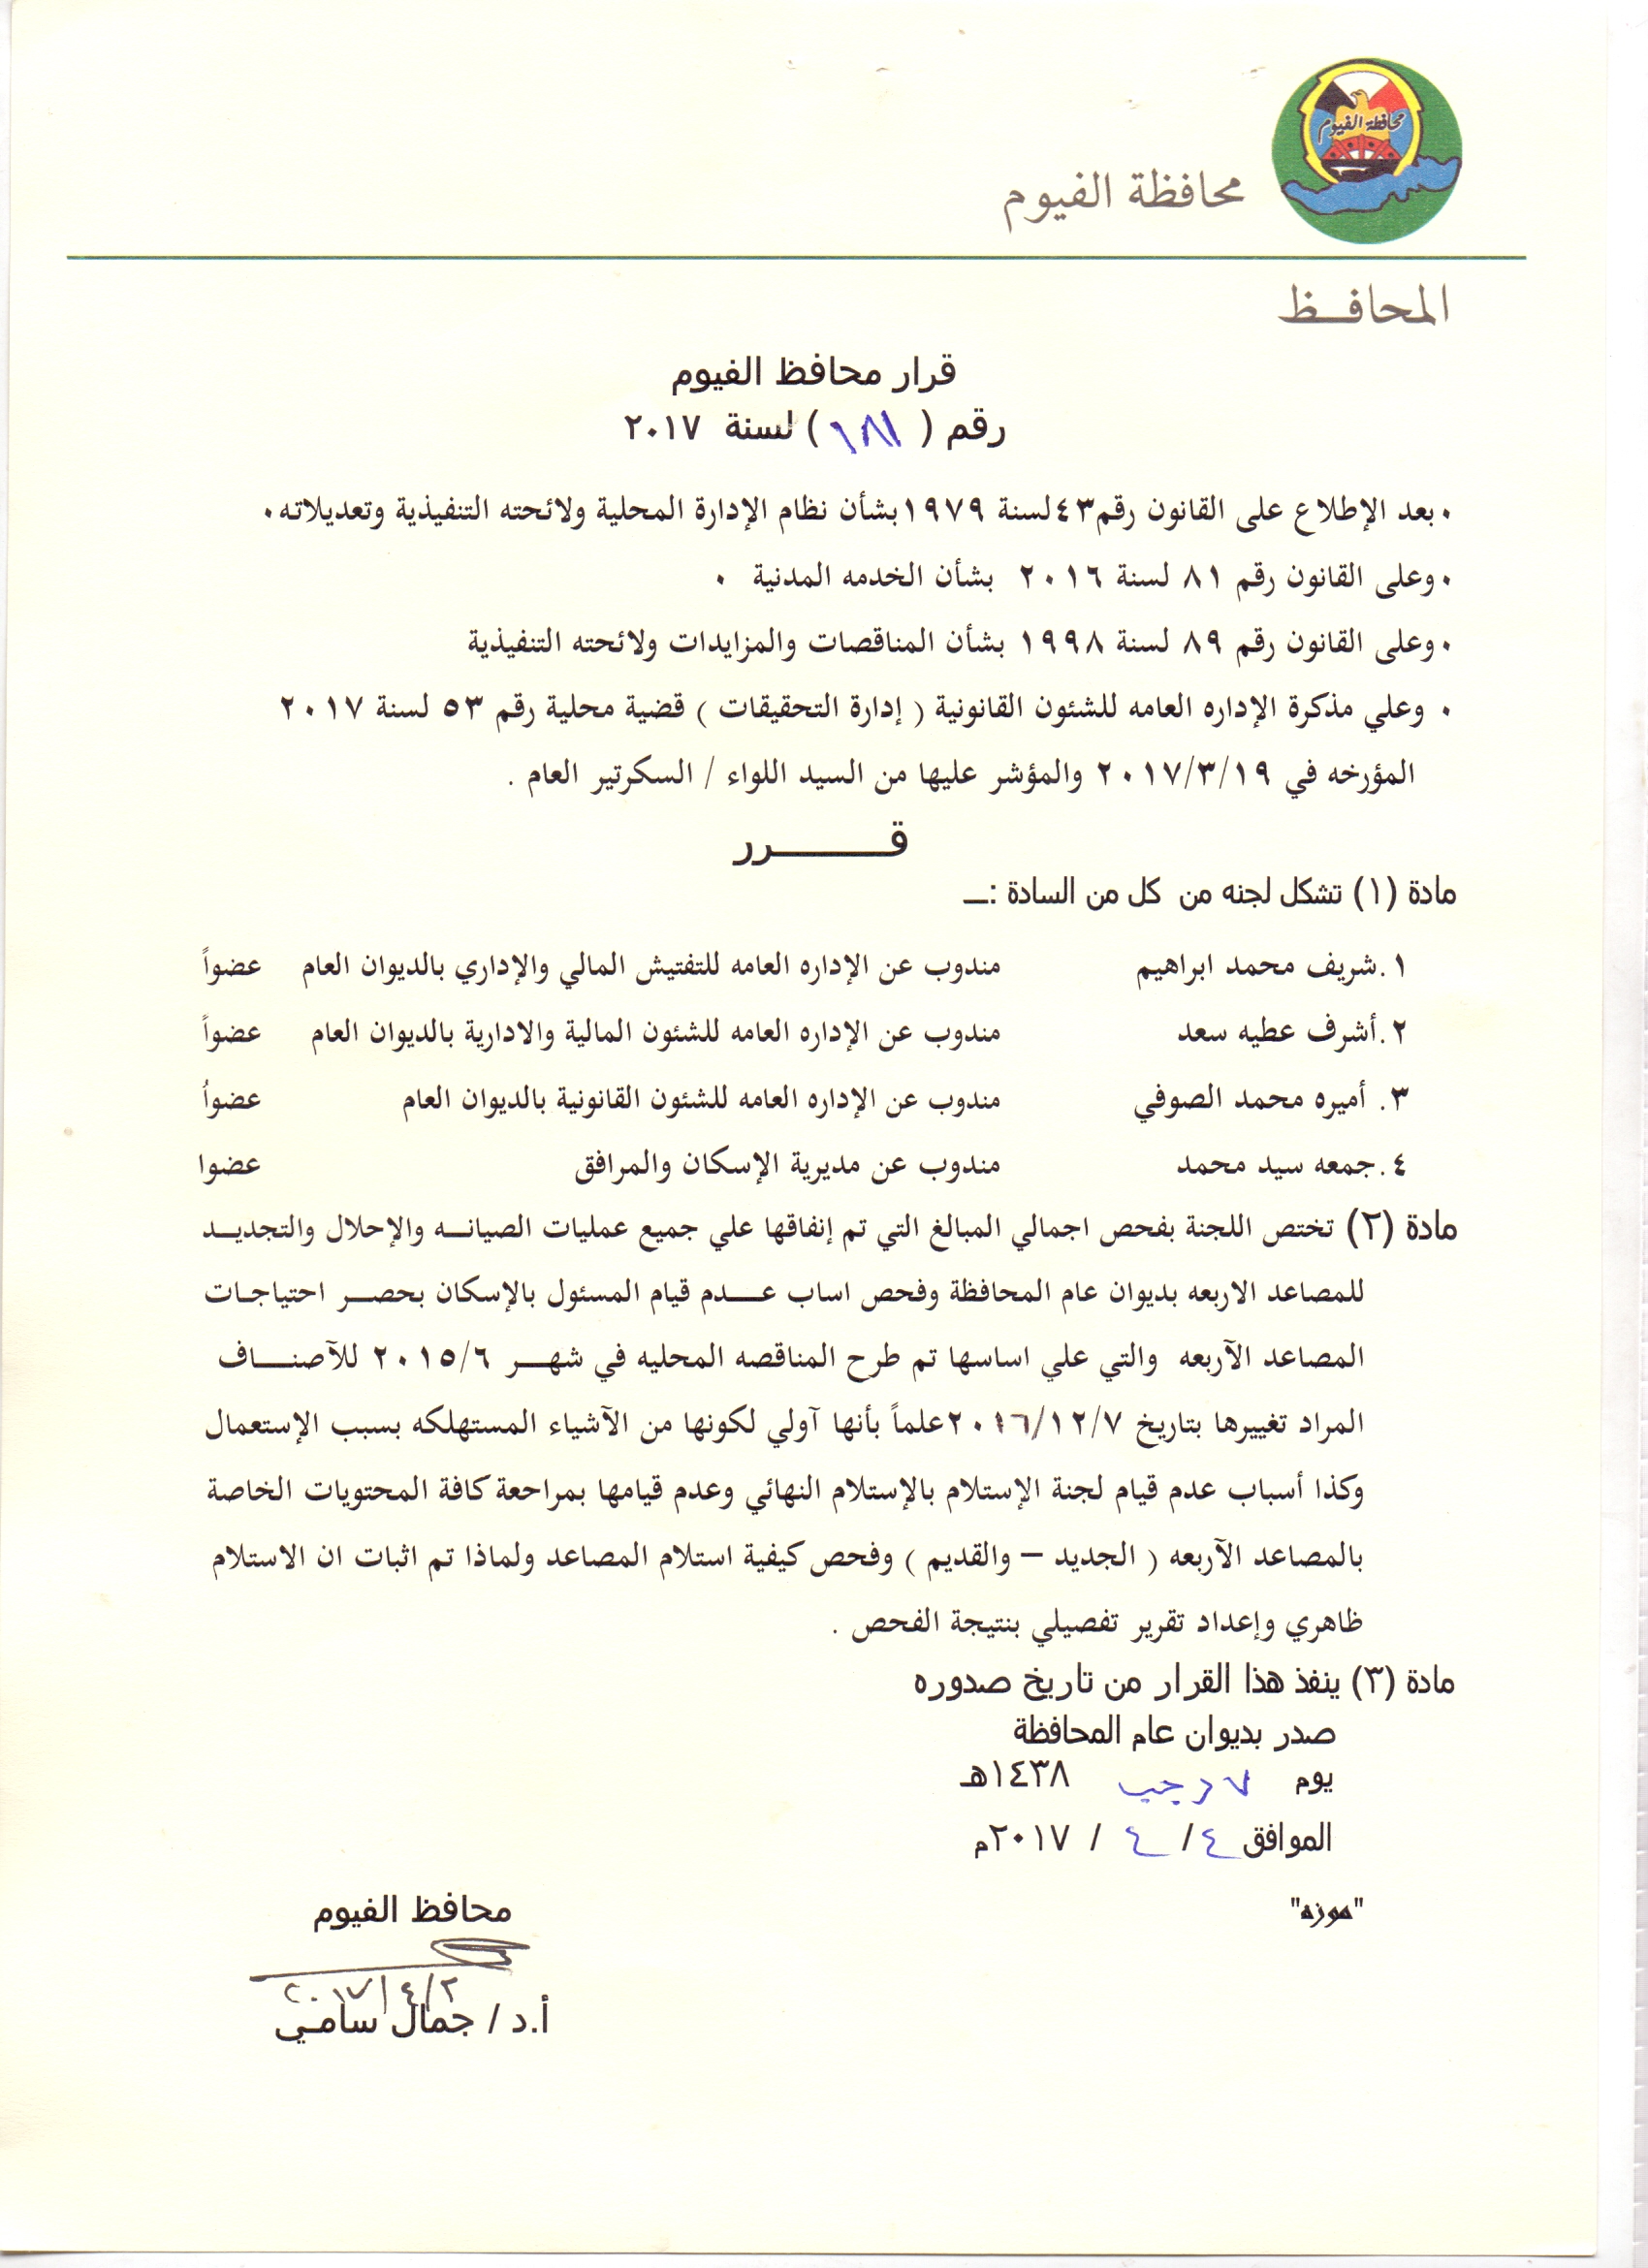 محافظة الفيوم
محافظة الفيوم
المحافـــظ
قرار محافظ الفيوم
رقم ( ١٨١ ) لسنة ٢٠١٧
٠ بعد الإطلاع على القانون رقم٤٣لسنة ١٩٧٩بشأن نظام الإدارة المحلية ولائحته التنفيذية وتعديلاته٠
٠ وعلى القانون رقم ٨١ لسنة ٢٠١٦ بشأن الخدمه المدنية ٠
٠ وعلى القانون رقم ٨٩ لسنة ١٩٩٨ بشأن المناقصات والمزايدات ولائحته التنفيذية
٠ وعلي مذكرة الإداره العامه للشئون القانونية ( إدارة التحقيقات ) قضية محلية رقم ٥٣ لسنة ٢٠١٧
المؤرخه في ٢٠١٧/٣/١٩ والمؤشر عليها من السيد اللواء / السكرتير العام .
قــــــــرر
مادة (١) تشكل لجنه من كل من السادة :ــ
١.شريف محمد ابراهيم مندوب عن الإداره العامه للتفتيش المالي والإداري بالديوان العام عضواً
٢.أشرف عطيه سعد مندوب عن الإداره العامه للشئون المالية والادارية بالديوان العام عضواً
٣. أميره محمد الصوفي مندوب عن الإداره العامه للشئون القانونية بالديوان العام عضواُ
٤.جمعه سيد محمد مندوب عن مديرية الإسكان والمرافق عضوا
مادة (٢) تختص اللجنة بفحص اجمالي المبالغ التي تم إنفاقها علي جميع عمليات الصيانــه والإحلال والتجديــد
للمصاعد الاربعه بديوان عام المحافظة وفحص اساب عــــدم قيام المسئول بالإسكان بحصــر احتياجـات
المصاعد الآربعه والتي علي اساسها تم طرح المناقصه المحليه في شهـــر ٢٠١٥/٦ للآصنـــاف
المراد تغييرها بتاريخ ٢٠١٦/١٢/٧علماً بأنها آولي لكونها من الآشياء المستهلكه بسبب الإستعمال
وكذا أسباب عدم قيام لجنة الإستلام بالإستلام النهائي وعدم قيامها بمراجعة كافة المحتويات الخاصة
بالمصاعد الآربعه ( الجديد – والقديم ) وفحص كيفية استلام المصاعد ولماذا تم اثبات ان الاستلام
ظاهري وإعداد تقرير تفصيلي بنتيجة الفحص .
مادة (٣) ينفذ هذا القرار من تاريخ صدوره
صدر بديوان عام المحافظة
يوم ٧ رجب ١٤٣٨هـ
الموافق ٤ / ٤ / ٢٠١٧م
"موزه"
محافظ الفيوم
٢٠١٧/٤/٢
أ.د / جمال سامـي